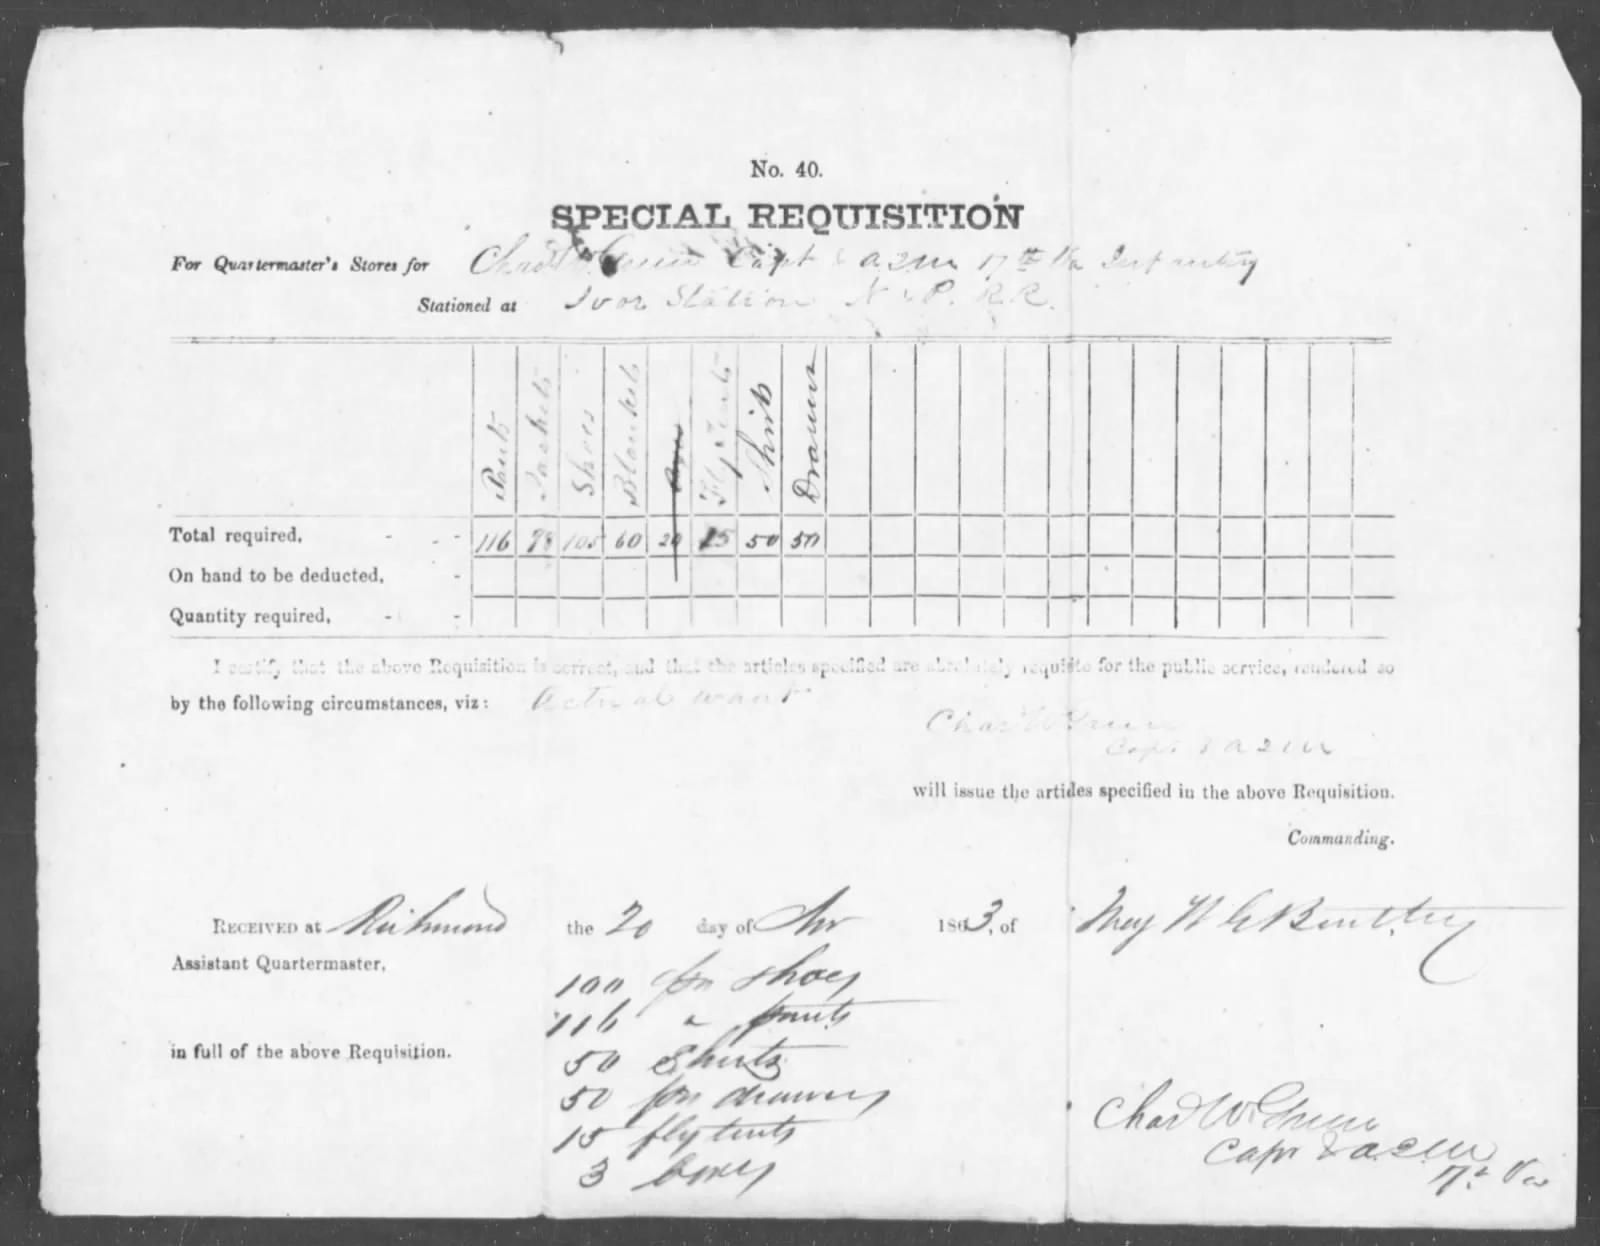 No. 40.
SPECIAL REQUISITION
For Quartermaster's Stores for Chas W. Green Capt & AQM 17th Va Infantry
Stationed at Ivor Station N & P. R.R.
Pants Jackets Shoes Blankets Fly Tents Shirts Drawers
Total required, - - - 116 78 105 60 20 15 50 50
On hand to be deducted, -
Quantity required, - -
I certify that the above Requisition is correct, and that the articles specified are absolutely requisite for the public service, rendered so
by the following circumstances, viz: Actual want
Chas W Green
Capt & AQM
will issue the articles specified in the above Requisition.
Commanding.
RECEIVED at Richmond the 20 day of 1863, of Maj W G Bentley
Assistant Quartermaster,
100 prs shoes
116 " pants
in full of the above Requisition.
50 Shirts
50 prs drawers
15 fly tents
3 boxes
Chas W Green
Capt & AQM
17th Va